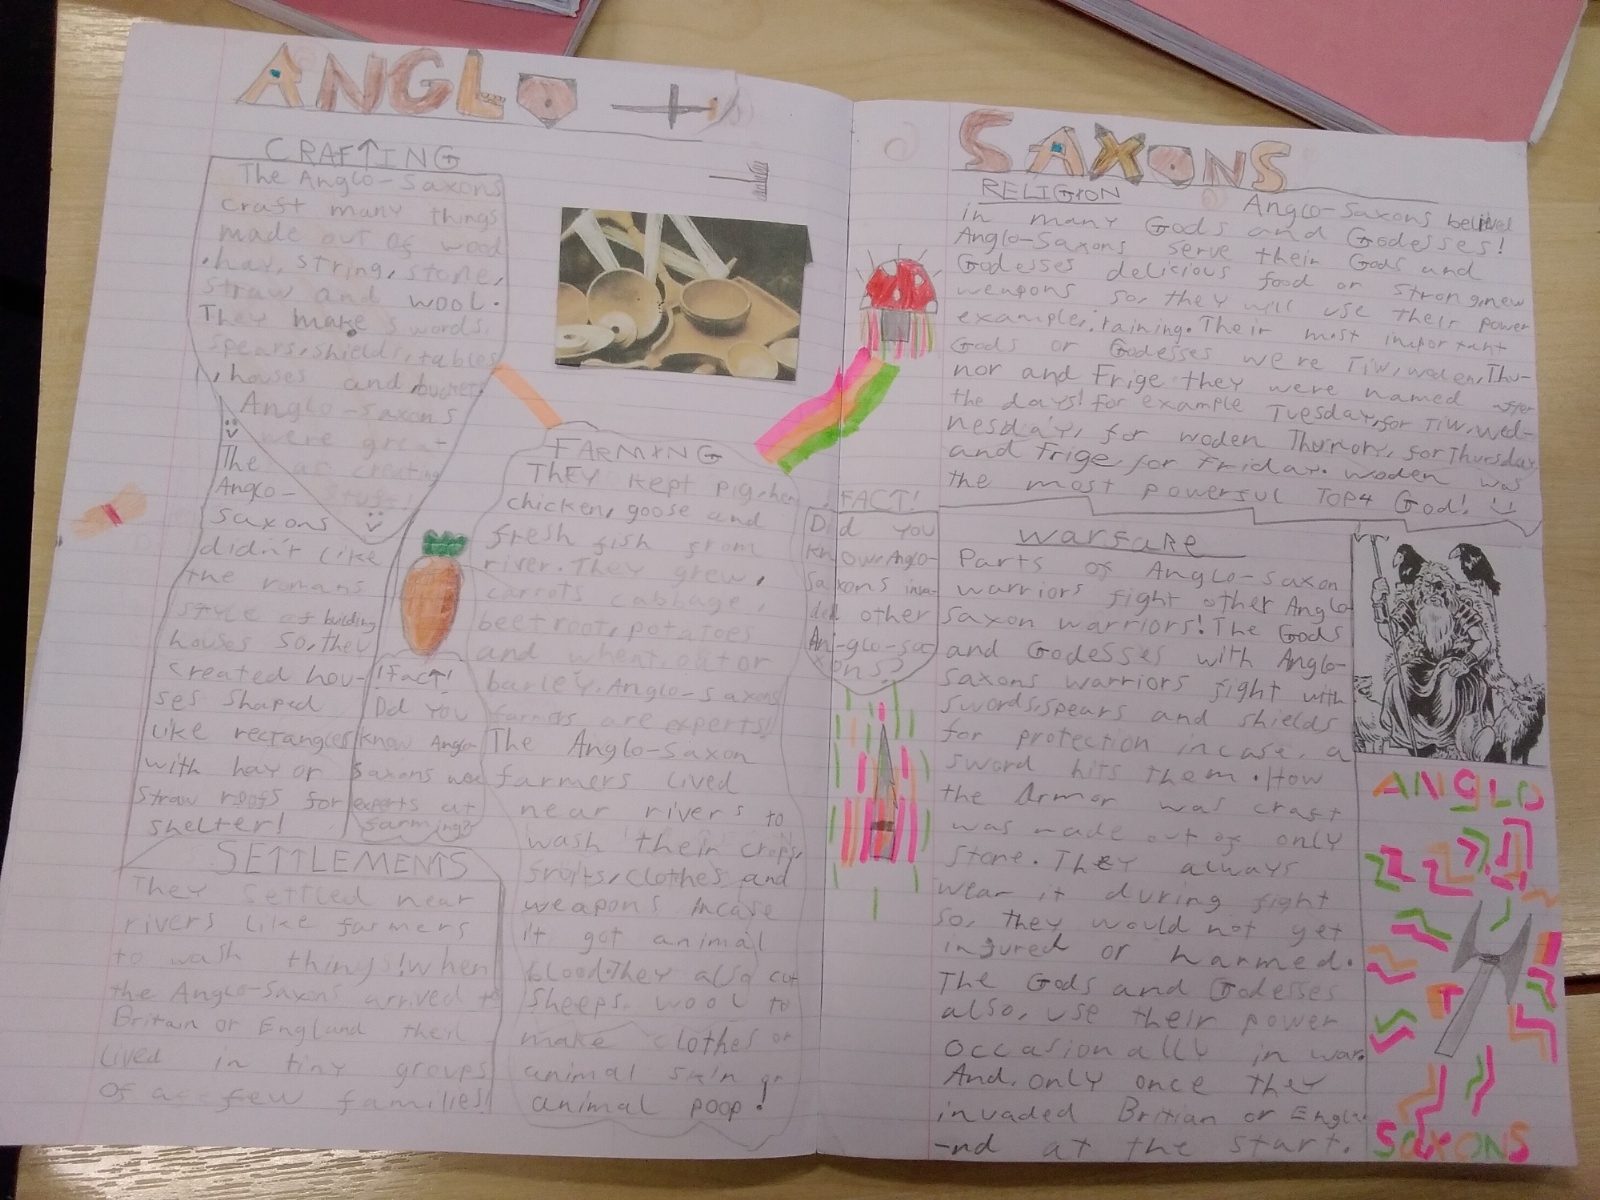 ANGLO
CRAFTING
The Anglo-Saxons
craft many things
made out of wood
, hay, string, stone,
straw and wool.
They make swords,
spears, shields, tables
, houses and buckets.
Anglo-Saxons
were great
at creating
stuff!
The
Anglo-
Saxons
didn't like
the romans
style of building
houses so, they
created hou-
ses shaped
like rectangles
with hay or
straw roofs for
shelter!
FARMING
THEY kept pig, hen
chicken, goose and
fresh fish from
river. They grew,
carrots cabbage,
beetroot, potatoes
and wheat, oat or
barley. Anglo-Saxons
farmers are experts!
The Anglo-Saxon
farmers lived
near rivers to
wash their crops,
fruits, clothes and
weapons incase
it got animal
blood. They also cut
sheeps wool to
make clothes or
animal skin or
animal poop!
1 Fact!
Did You
know Anglo
Saxons were
experts at
farming?
SETTLEMENTS
They settled near
rivers like farmers
to wash things! When
the Anglo-Saxons arrived to
Britain or England they
lived in tiny groups
of a few families!
SAXONS
RELIGION
Anglo-Saxons
in many Gods and Godesses!
Anglo-Saxons serve their Gods and
Godesses delicious food or strong, new
weapons so, they will use their power
example: taining. Their most important
Gods or Godesses were Tiw, woden, Thu-
nor and Frige they were named after
the days! for example Tuesday, for Tiw, wed-
nesday, for woden Thunor, for Thursday
and Frige, for Friday. woden was
the most powerful TOP4 God!
FACT!
Did you
know Anglo-
Saxons inva-
ded other
An-glo-sax
ons?
warfare
Parts of Anglo-saxon
warriors fight other Anglo
saxon warriors! The Gods
and Godesses with Anglo-
saxons warriors fight with
swords, spears and shields
for protection incase a
sword hits them. How
the Armor was craft
was made out of only
stone. THEY always
wear it during fight
so, they would not get
injured or harmed.
The Gods and Godesses
also, use their power
occasionally in war.
And, only once they
invaded Britian or Engla
-nd at the start.
ANGLO
SAXONS